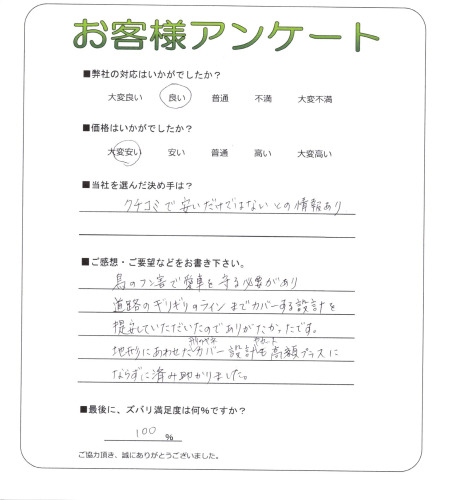 お客様アンケート
■弊社の対応はいかがでしたか？
大変良い 良い 普通 不満 大変不満
■価格はいかがでしたか？
大変安い 安い 普通 高い 大変高い
■当社を選んだ決め手は？
クチコミで安いだけではないとの情報あり
■ご感想・ご要望などをお書き下さい。
鳥のフン害で愛車を守る必要があり
道路のギリギリのラインまでカバーする設計を
提案していただいたのでありがたかったです。
地形にあわせたカバー設計も高額プラスに
ならずに済み助かりました。
■最後に、ズバリ満足度は何%ですか？
100 %
ご協力頂き、誠にありがとうございました。